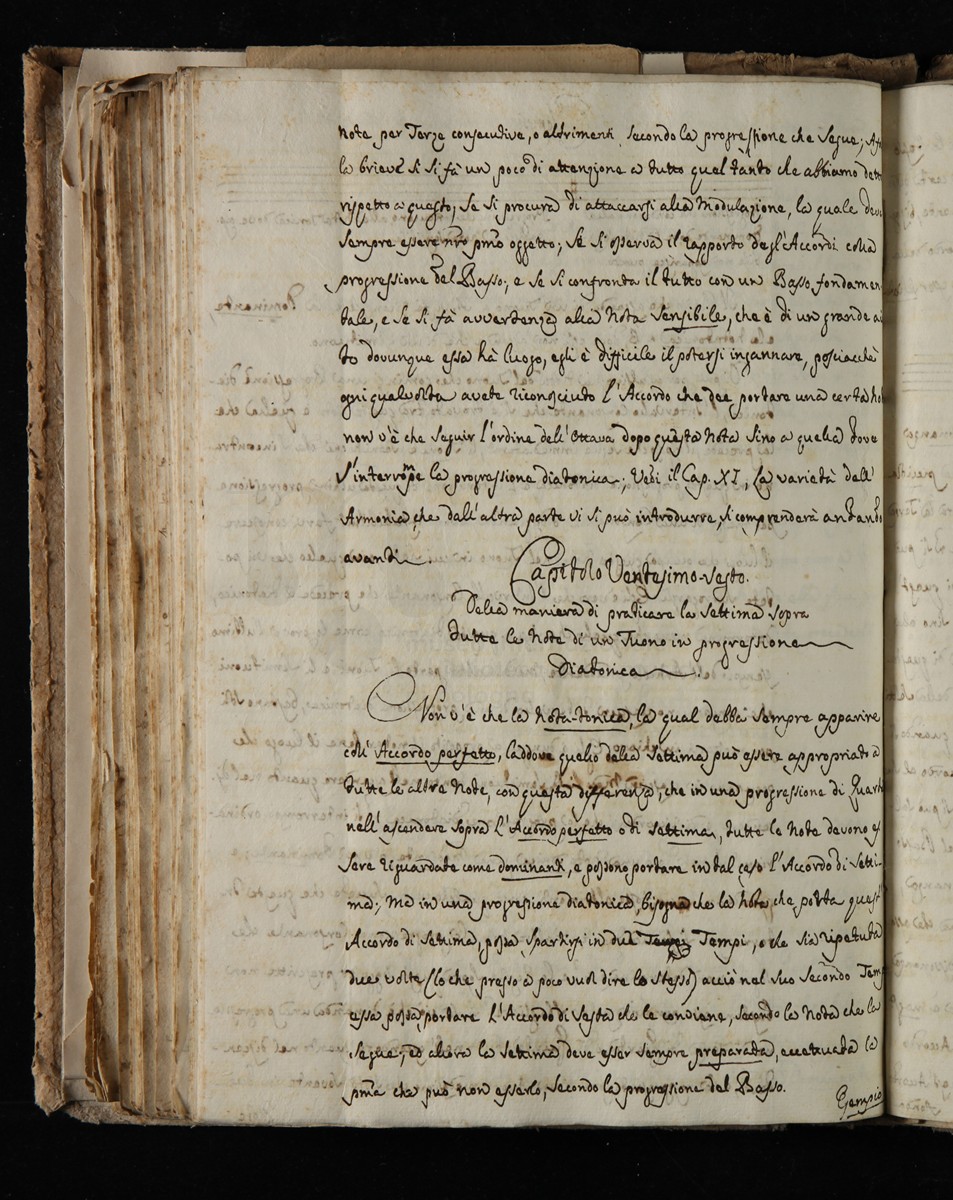 note per Terze consecutive, o altrimenti secondo la progressione che segue; Al
la brieve si si fà un poco di attenzione a tutto quel tanto che abbiamo dett
rispetto a questo; se si procura di attaccarsi alla Modulazione, la quale deve
sempre essere nrō pmō oggetto; se si osserva il rapporto degl'Accordi colla
progressione del Basso; e se si confronta il tutto con un Basso fondamen
tale, e se si fà avvertenza alla Nota Sensibile, che è di un grande aiu
to dovunque essa hà luogo, egli è difficile il potersi ingannare, posciacchè
ogni qualvolta avete riconosciuto l'Accordo che dee portare una certa no
non v'è che seguir l'ordine dell'Ottava dopo questa Nota sino a quella dove
s'interrompe la progressione diatonica; Vedi il Cap. XI, La varietà dell'
Armonia, che dall'altra parte vi si può introdurre, si comprenderà andando
avanti.
Capitolo Ventesimo-Sesto.
Della maniera di praticare la Settima sopra
tutte le Note di un Tuono in progressione
Diatonica.
Non v'è che la nota-tonica, la qual debba sempre apparire
coll'Accordo perfetto, laddove quello della Settima può essere appropriato a
tutte le altre Note, con questa differenza, che in una progressione di Quart
nell'ascendere sopra l'Accordo perfetto o di settima, tutte le Note devono es
sere riguardate come dominanti, e possono portare in tal caso l'Accordo di Setti-
ma; Ma in una progressione diatonica, bisogna che la Nota, che porta quest'
Accordo di Settima, possa spartirsi in due Tempi, o che sia ripetuta
due volte (lo che presso a poco vuol dire lo stesso) acciò nel suo secondo Temp
essa possa portare l'Accordo di Sesta che le conviene, secondo la Nota che la
segue; ed allora la settima deve esser sempre preparata, eccettuata la
pma che può non esserlo, secondo la progressione del Basso.
Esempio